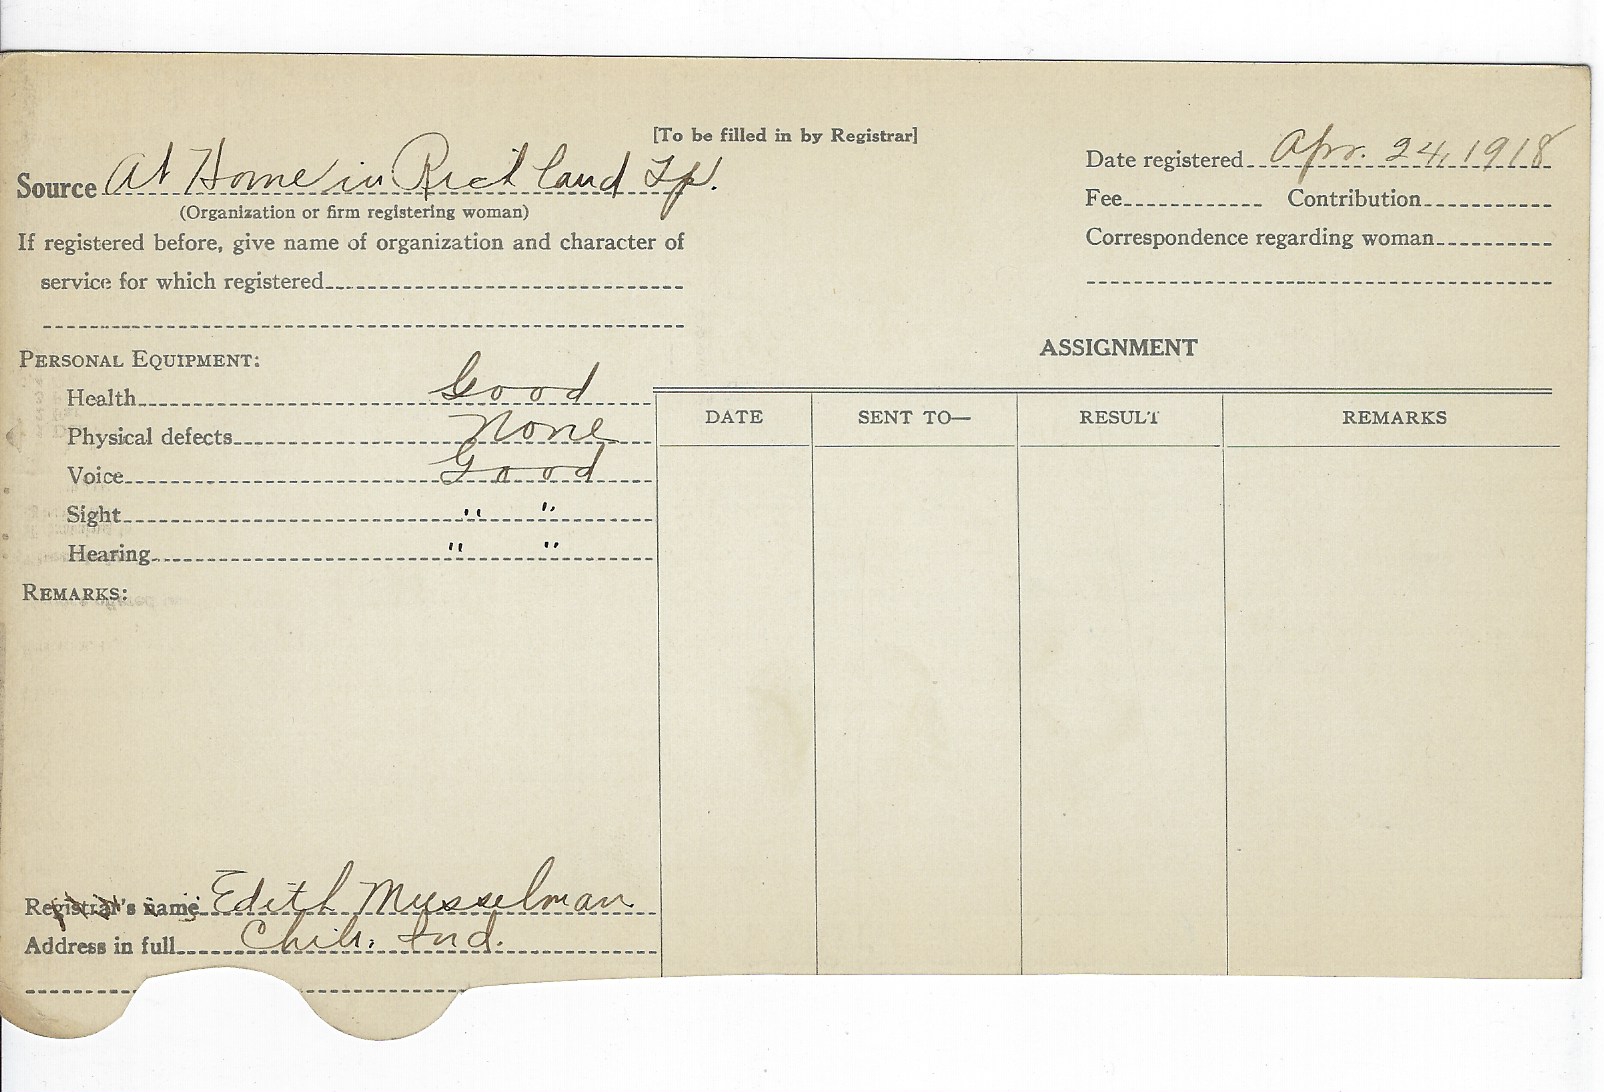 [To be filled in by Registrar]
Source At Home in Richland Tp.
(Organization or firm registering woman)
If registered before, give name of organization and character of
service for which registered
PERSONAL EQUIPMENT:
Health Good
Physical defects None
Voice Good
Sight " "
Hearing " "
REMARKS:
Registrar's name Edith Musselman
Address in full Chili, Ind.
Date registered Apr. 24, 1918
Fee Contribution
Correspondence regarding woman
ASSIGNMENT
DATE SENT TO— RESULT REMARKS